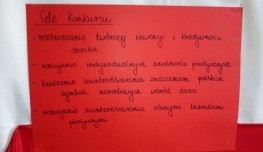 Cele konkursu
- rozbudzanie twórczej inwencji i kreatywności
dziecka
- rozwijanie indywidualnych zdolności plastycznych
- budzenie zainteresowania znaczeniem polskich
symboli narodowych wśród dzieci
- rozwijanie zainteresowania różnymi technikami
plastycznymi